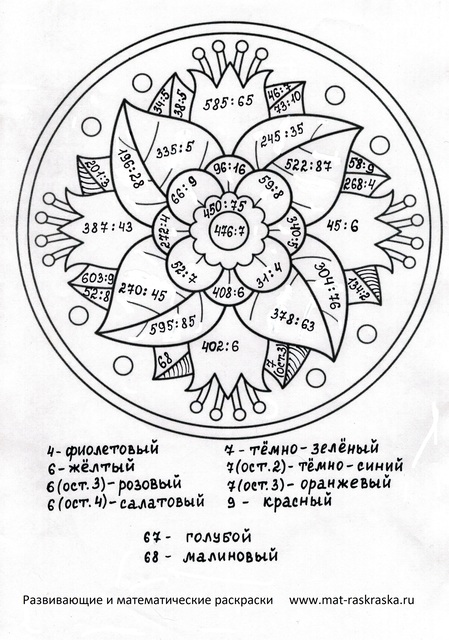 585:65
34:5
38:5
46:7
73:10
335:5
245:35
196:28
522:87
96:16
201:3
66:9
59:8
58:9
268:4
450:75
476:7
387:43
272:4
340:5
45:6
52:7
31:4
603:9
52:8
270:45
408:6
304:76
134:2
595:85
378:63
402:6
68
7(ост.3)
4-фиолетовый
6-жёлтый
6(ост.3)-розовый
6(ост.4)-салатовый
7-тёмно-зелёный
7(ост.2)-тёмно-синий
7(ост.3)-оранжевый
9 - красный
67- голубой
68 - малиновый
Развивающие и математические раскраски www.mat-raskraska.ru